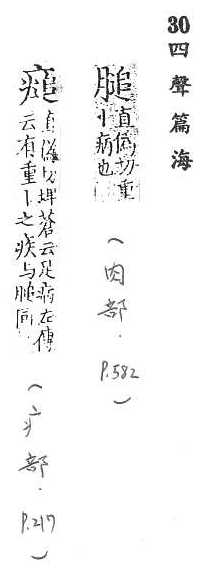 30四聲篇海
膇
直偽切重
病也
(肉部.P.582)
直偽切埤蒼云足病左傳
云有重之疾与膇同
(疒部.P.217)